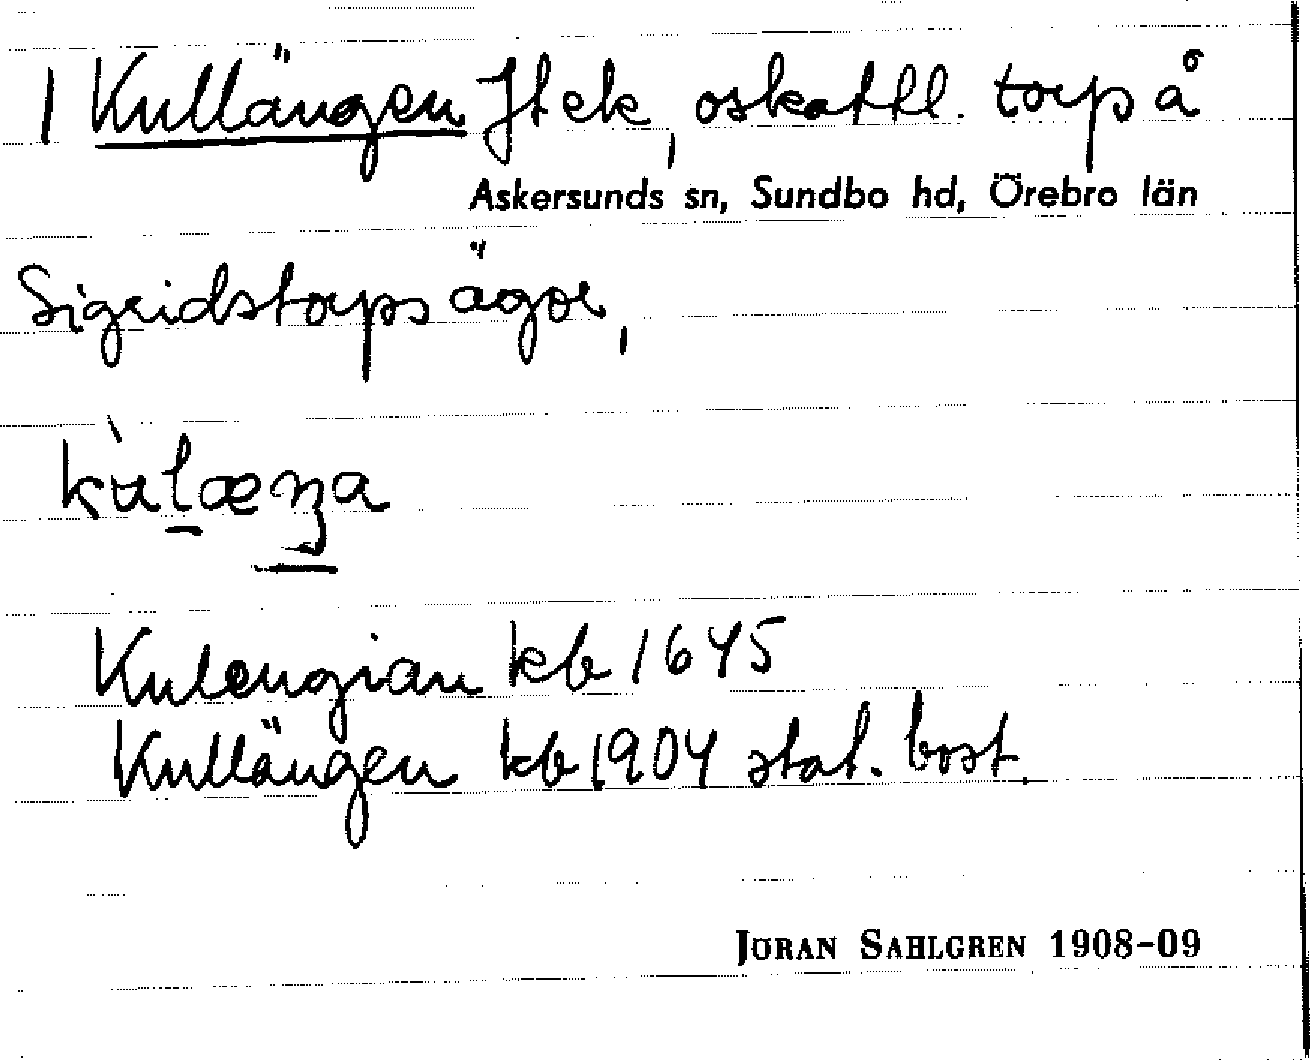 1 Kullängen Jfek, oskattl. torp å
Askersunds sn, Sundbo hd, Örebro län
Sigridstorps ägor,
kùlæŋa
Kulengian kb 1645
Kullängen kb 1904 stat. bost.
JÖRAN SAHLGREN 1908-09